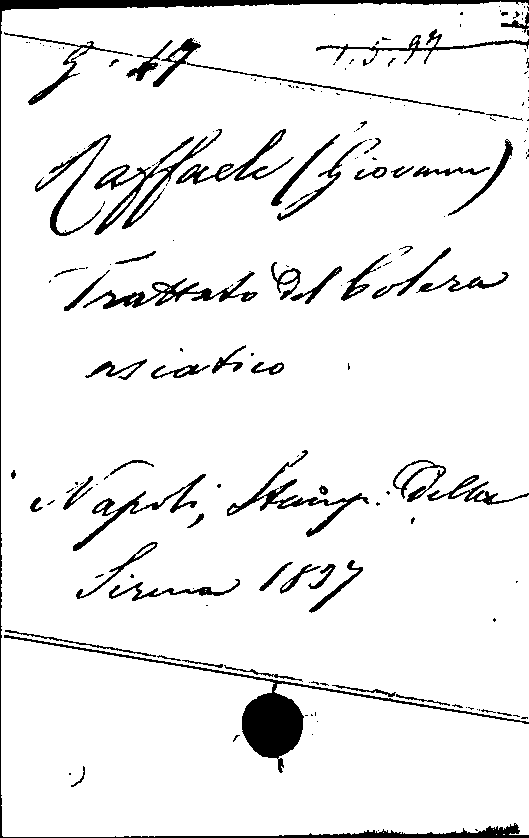 G. 47 1.5.97
Raffaele (Giovanni)
Trattato del Colera
asiatico
Napoli, Stamp. Della
Sirena 1837